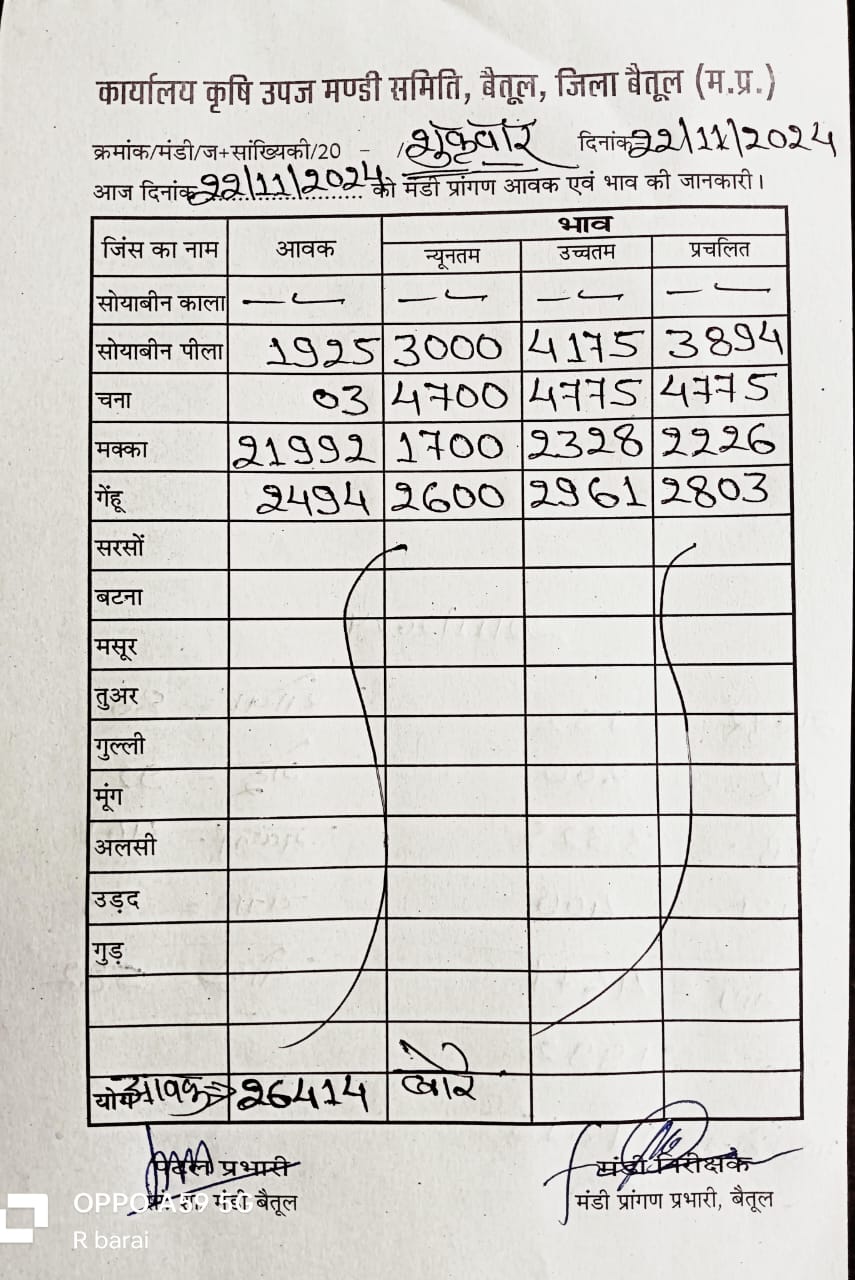 कार्यालय कृषि उपज मण्डी समिति, बैतूल, जिला बैतूल (म.प्र.)
क्रमांक/मंडी/ज+सांख्यिकी/20 - /शुक्रवार दिनांक 22/11/2024
आज दिनांक 22/11/2024 को मंडी प्रांगण आवक एवं भाव की जानकारी।
जिंस का नाम आवक भाव
न्यूनतम उच्चतम प्रचलित
सोयाबीन काला — — — —
सोयाबीन पीला 1925 3000 4175 3894
चना 03 4700 4775 4775
मक्का 21992 1700 2328 2226
गेंहू 2494 2600 2961 2803
सरसों
बटना
मसूर
तुअर
गुल्ली
मूंग
अलसी
उड़द
गुड़
योग आवक → 26414 बोरे
प्रभारी मंडी निरीक्षक
मंडी बैतूल मंडी प्रांगण प्रभारी, बैतूल
OPPO A59 5G
R barai